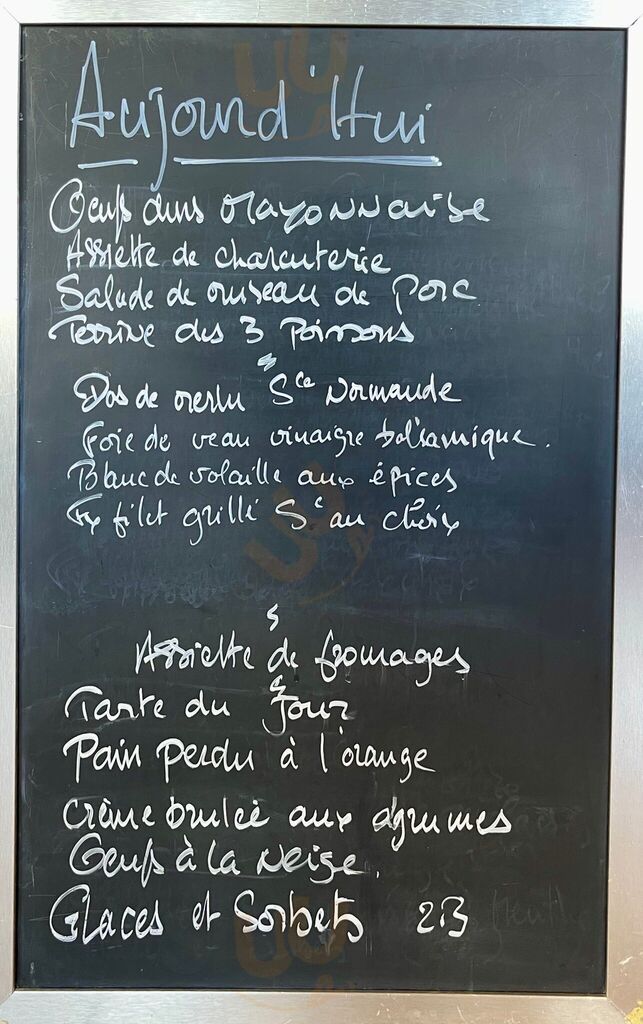 Aujourd'Hui
Oeufs durs Mayonnaise
Assiette de charcuterie
Salade de museau de Porc
Terrine des 3 Poissons
Dos de merlu Sce Normande
Foie de veau vinaigre balsamique.
Blanc de volaille aux épices
Fx filet grillé Sc au choix
Assiette de fromages
Tarte du Jour
Pain Perdu à l'orange
Crème brulée aux agrumes
Oeufs à la Neige.
Glaces et Sorbets 2B